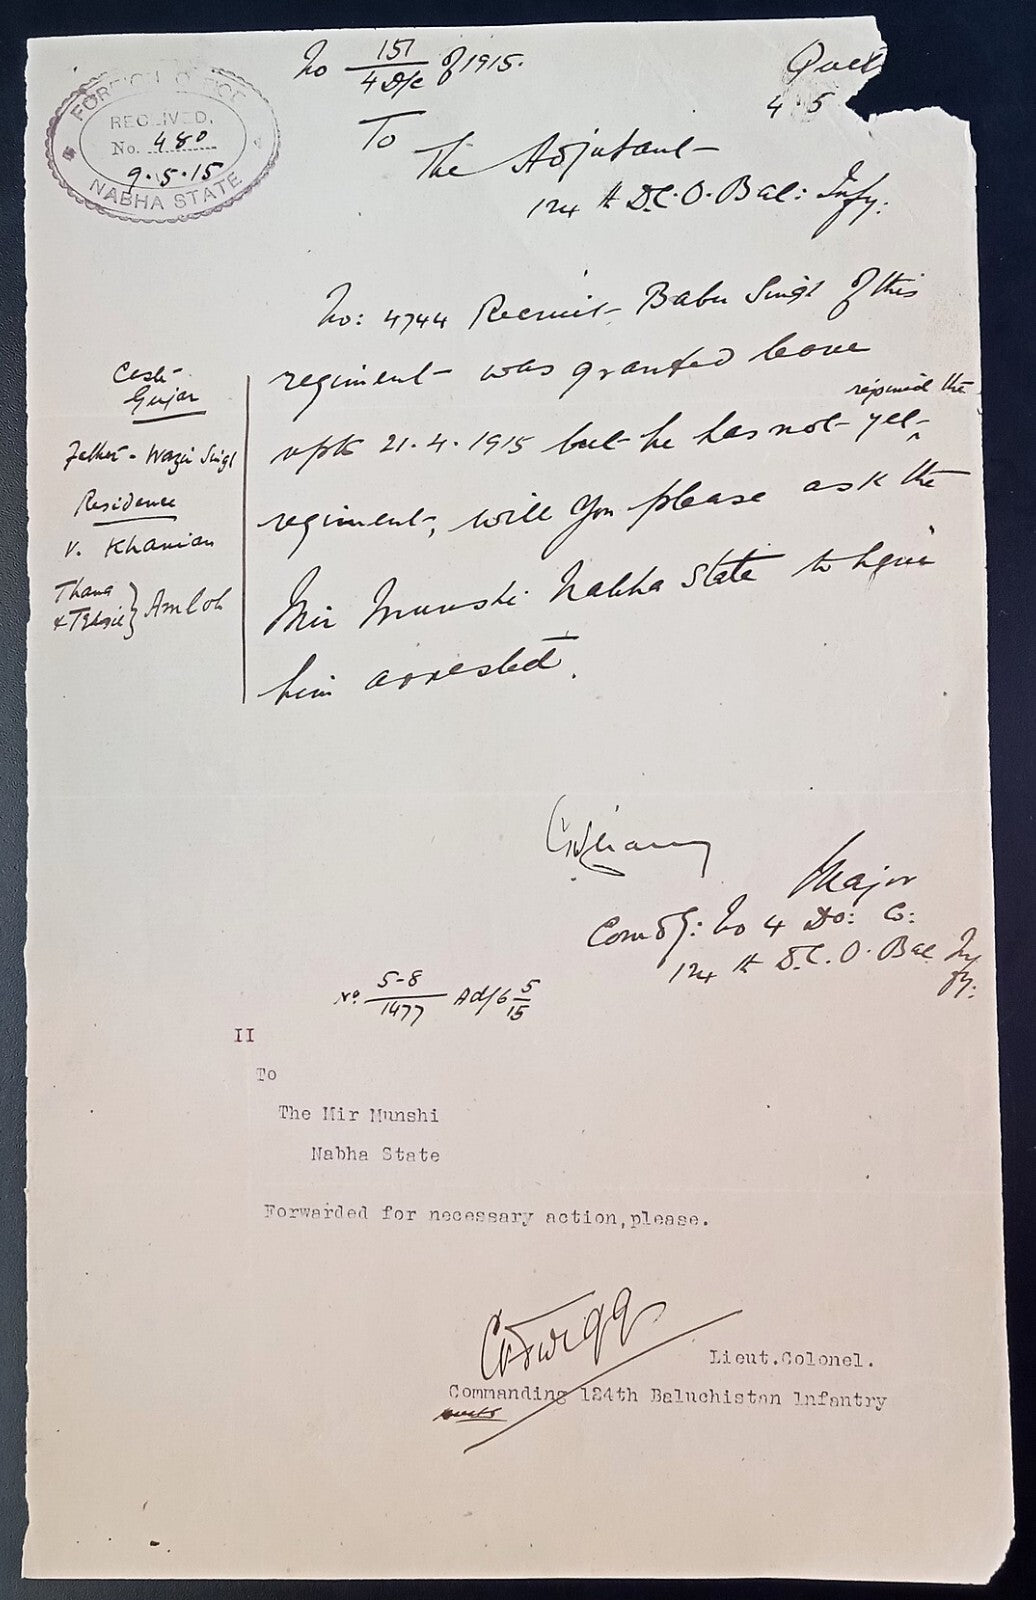 FOREIGN OFFICE
RECEIVED.
No. 480
9.5.15
NABHA STATE
No 151/4 D/c of 1915.
Quet
4 5
To
The Adjutant
124th D.C.O. Bal: Infy:
No: 4744 Recruit Babu Singh of this
regiment was granted leave
upto 21.4.1915 but he has not yet rejoined the
regiment, will you please ask the
Mir Munshi Nabha State to have
him arrested.
Cast
Gujar
Father - Wazir Singh
Residence
V. Khanian
Thana
& Tehsil } Amloh
Major
Comdg: No 4 Do: Co:
124th D.C.O. Bal Infy:
No 5-8/1477 Adj 6 5/15
II
To
The Mir Munshi
Nabha State
Forwarded for necessary action,please.
Lieut.Colonel.
Commanding 124th Baluchistan Infantry